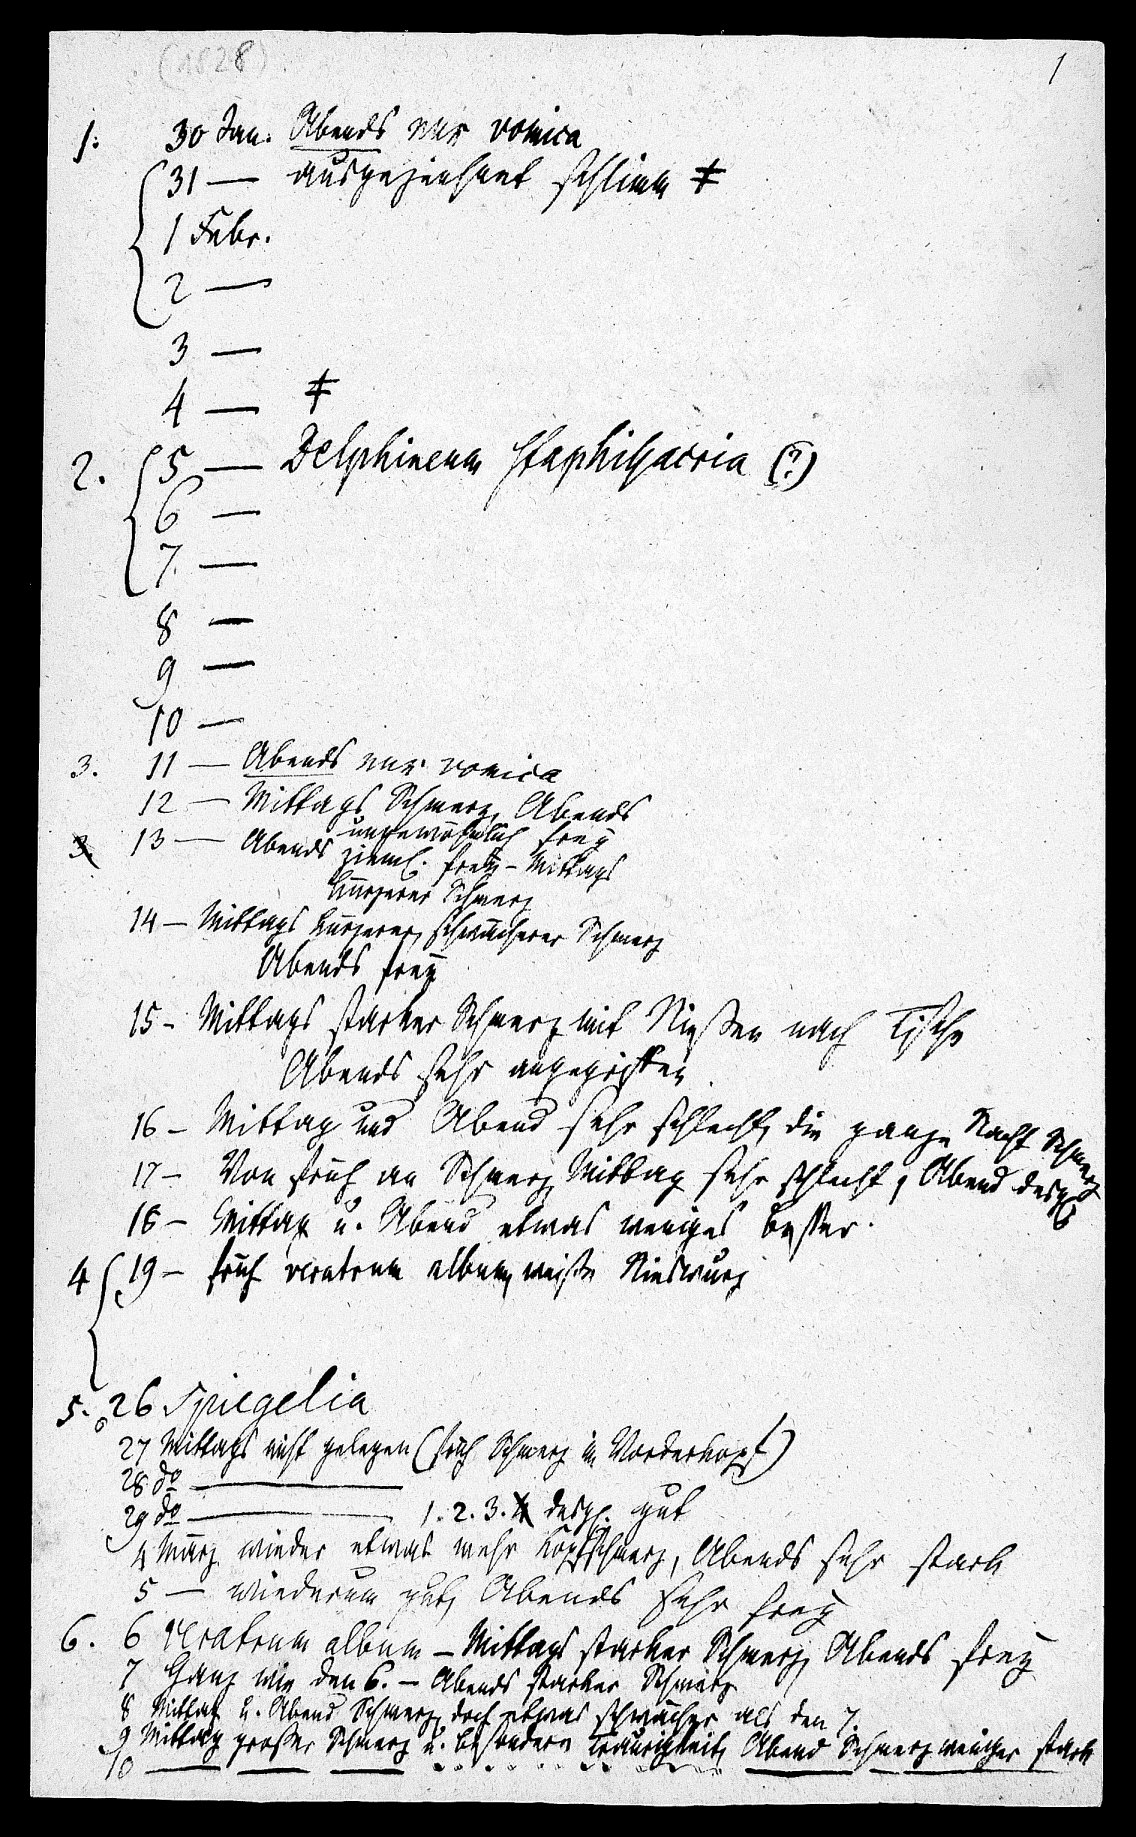 (1828)
1
1. 30 Jan. Abends nux vomica
31 — ausgezeichnet schlimm ‡
1 Febr.
2 —
3 —
4 — ‡
2. 5 — Delphineum Staphisacria (?)
6 —
7. —
8 —
9 —
10 —
3. 11 — Abends nux vomica
12 — Mittags Schmerz, Abends
ungewöhnlich frey
3. 13 — Abends zieml. frey – Mittags
kürzerer Schmerz
14 – Mittags kürzerer, schwächerer Schmerz
Abends frey
15 – Mittags starker Schmerz mit Nießen nach Tische
Abends sehr angegriffen
16 – Mittag und Abend sehr schlecht, die ganze Nacht Schmerz
17 – Von früh an Schmerz, Mittag sehr schlecht, Abend desgl
18 – Mittag u. Abend etwas weniges besser.
4 19 – früh veratrum album, weiße Nieswurz
5. 26 Spiegelia
27 Mittags nicht gelegen (früh Schmerz im Vorderkopf)
28 do —
29 do — 1. 2. 3. 4 desgl. gut
4 März wieder etwas mehr Kopfschmerz, Abends sehr stark
5 — wiederum gut, Abends sehr frey
6. 6 veratrum album – Mittags starker Schmerz, Abends frey
7 Ganz wie den 6. – Abends starker Schmerz
8 Mittag u. Abend Schmerz, doch etwas schwächer als den 7.
9 Mittag großer Schmerz u. besondere Traurigkeit, Abend Schmerz weniger stark
10 —